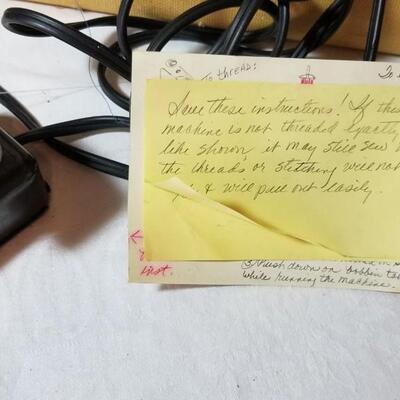 To thread:
To
Save these instructions! If this
machine is not threaded exactly
like shown it may still sew
the threads or stitching will not
& will pull out easily.
first.
③ Push down on bobbin
while running the machine.